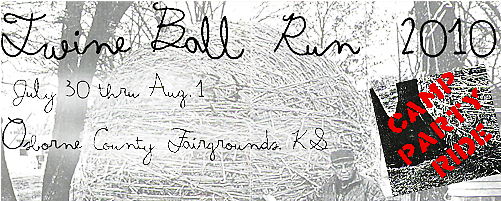 Twine Ball Run 2010
July 30 thru Aug. 1
Osborne County Fairgrounds KS
CAMP
PARTY
RIDE